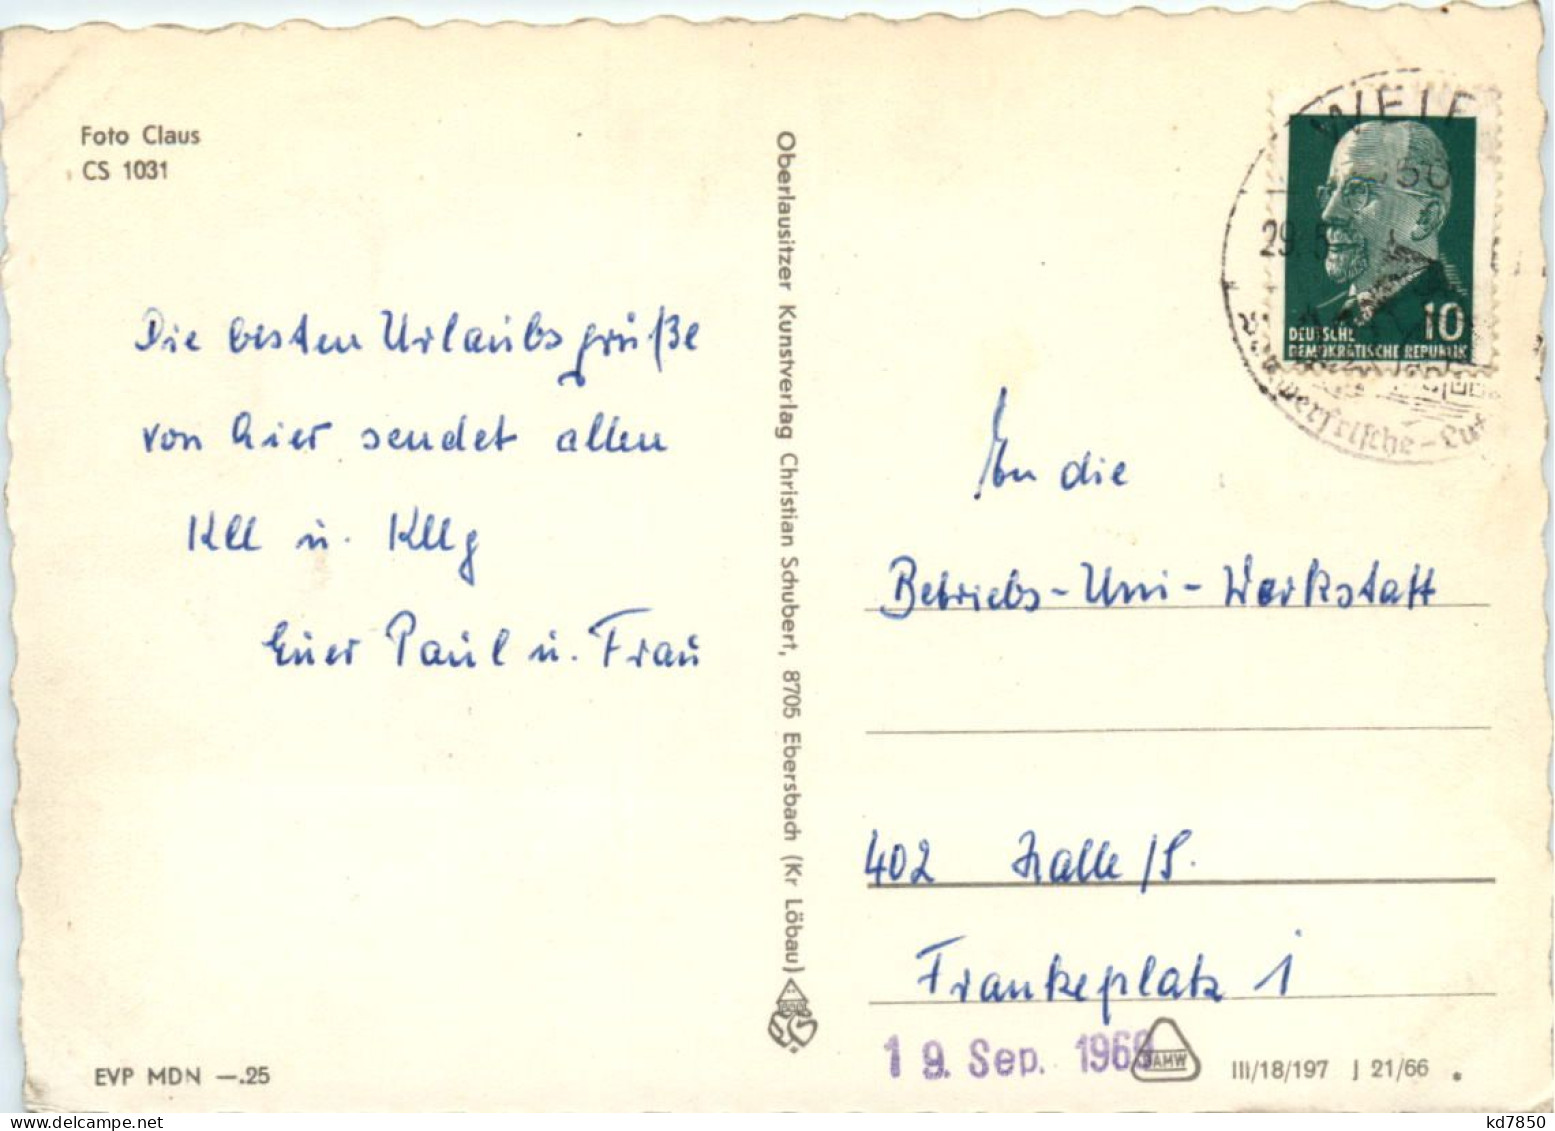 Foto Claus
CS 1031
Die besten Urlaubsgrüße
von hier sendet allen
Kll u. Kllg
Euer Paul u. Frau
EVP MDN —.25
Oberlausitzer Kunstverlag Christian Schubert, 8705 Ebersbach (Kr Löbau)
29.5
10
DEUTSCHE
DEMOKRATISCHE REPUBLIK
An die
Betriebs-Uni-Werkstatt
402 Halle/S.
Frankeplatz 1
19. Sep. 196
DAMW
III/18/197 J 21/66
kd7850